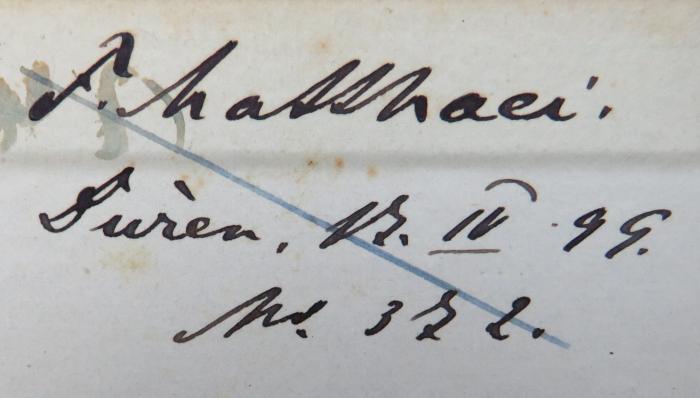 P. Matthaei.
Düren, 17. IV. 99.
No. 372.